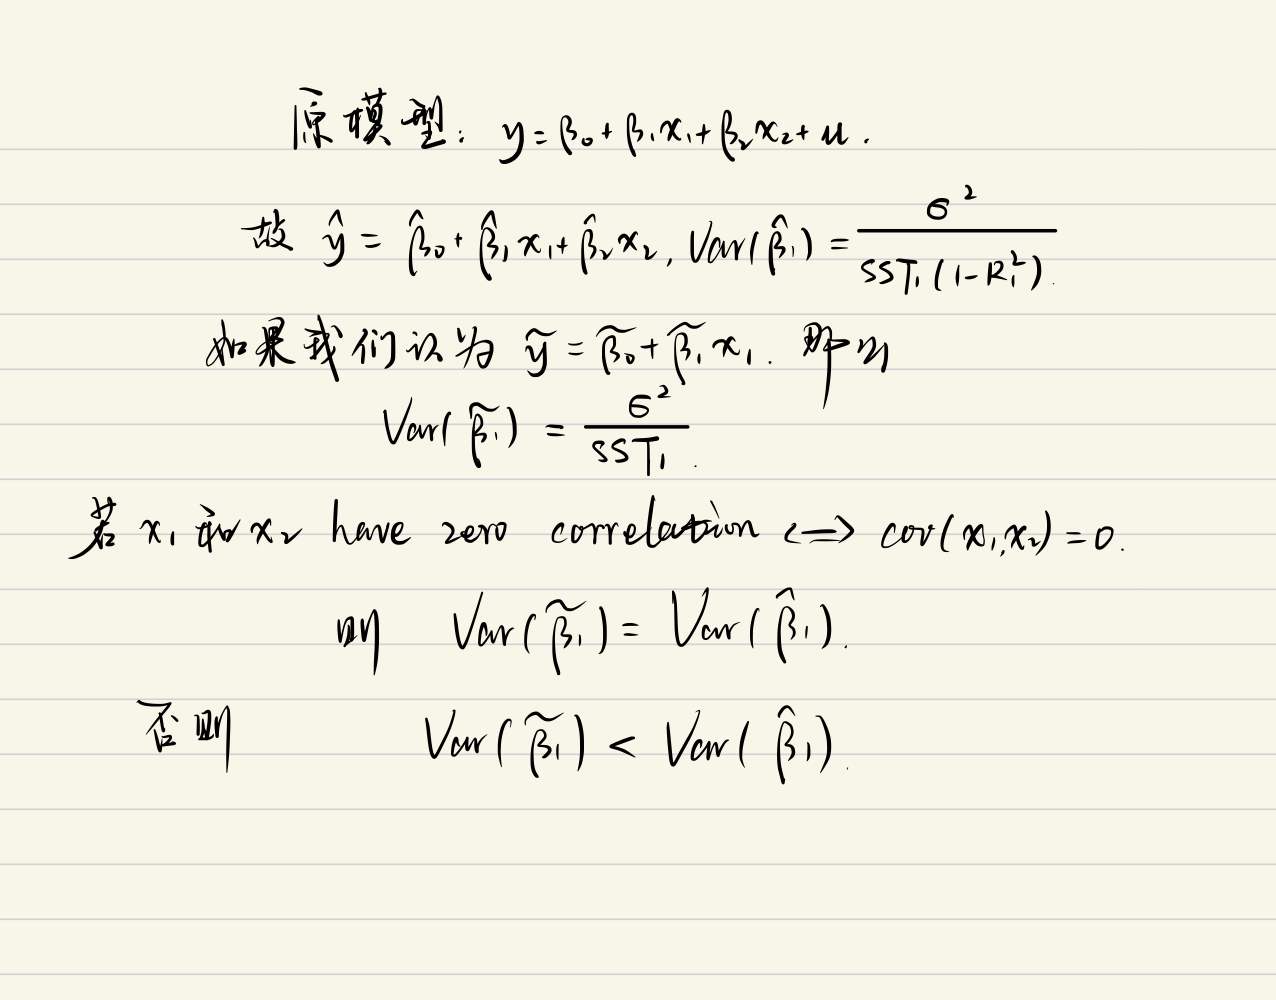 原模型: y = β₀ + β₁x₁ + β₂x₂ + u .
故 ŷ = β̂₀ + β̂₁x₁ + β̂₂x₂ , Var(β̂₁) = σ² / SST₁(1-R₁²).
如果我们认为 ỹ = β̃₀ + β̃₁x₁. 那么
Var(β̃₁) = σ² / SST₁.
若 x₁ 和 x₂ have zero correlation <=> cov(x₁,x₂) = 0.
则 Var(β̃₁) = Var(β̂₁).
否则 Var(β̃₁) < Var(β̂₁).